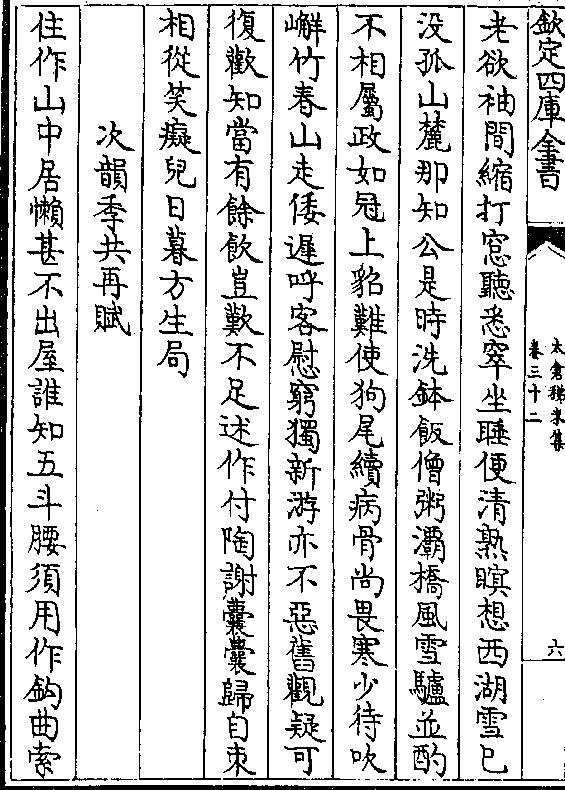 欽定四庫全書
太倉稊米集
卷三十二
六
老欲袖間縮打窓聽悉窣坐睡便清熟瞑想西湖雪已
没孤山麓那知公是時洗鉢飯僧粥灞橋風雪驢並酌
不相屬政如冠上貂難使狗尾續病骨尚畏寒少待吹
嶰竹春山走倭遲呼客慰窮獨新游亦不惡舊觀疑可
復歡知當有餘飲豈歎不足述作付陶謝囊囊歸自束
相從笑癡兒日暮方生局
次韻季共再賦
住作山中居懶甚不出屋誰知五斗腰須用作鈎曲索